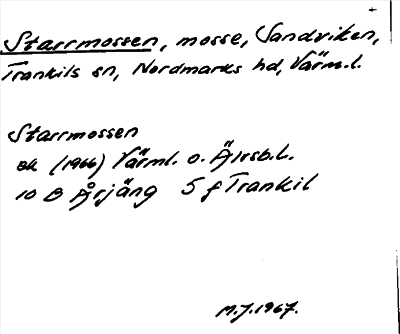 Starrmossen, mosse, Sandviken,
Trankils sn, Nordmarks hd, Värm.l.
Starrmossen
ek (1966) Värml. o. Älvsb.l.
10 B Årjäng 5 f Trankil
M.J. 1967.